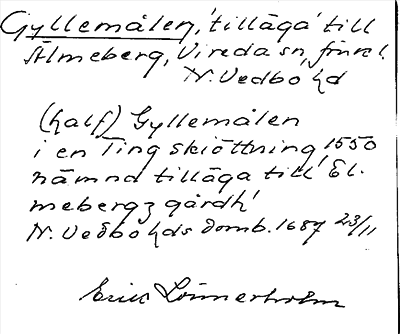 Gyllemålen, 'tillåga' till
Älmeberg, Vireda sn, förrel.
N. Vedbo hd
(half) Gyllemålen
i en Ting skiöttning 1550
nämnd tillåga till El.
mebergz gårdh'
N. Vedbo hds domb. 1687 23/11
Eric Lönnerholm